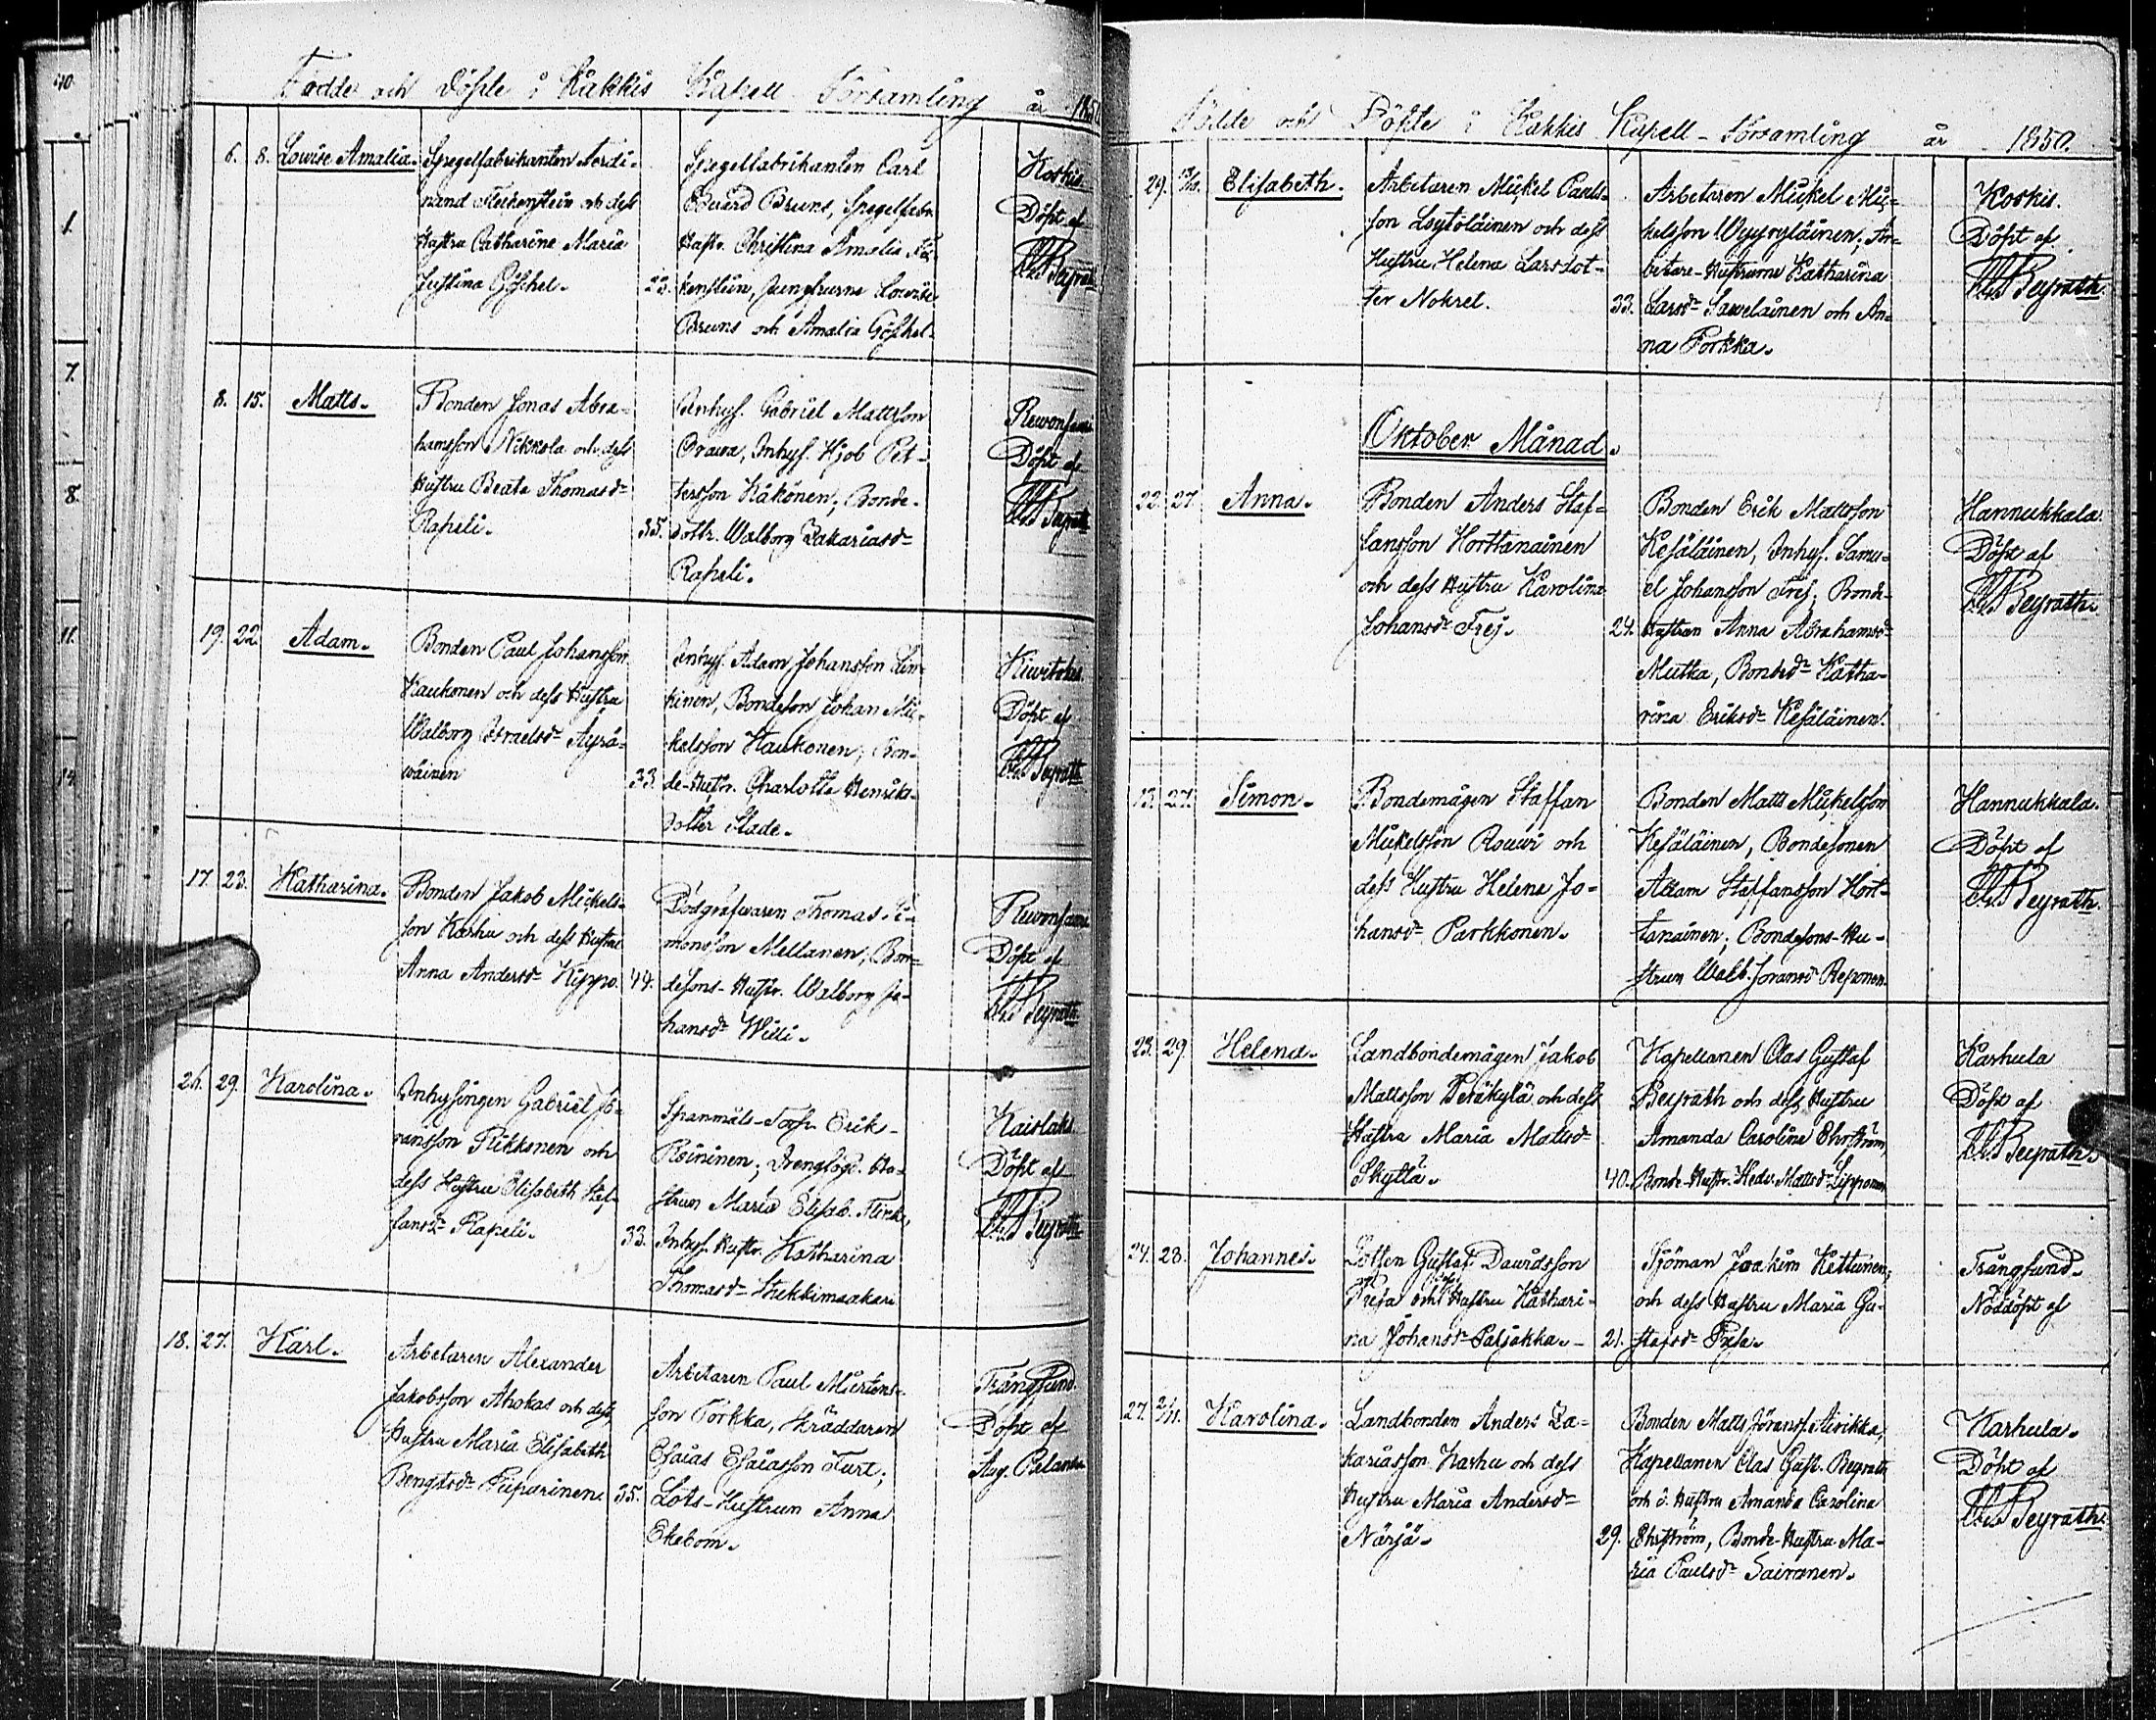 Födde och Döpte i Kakkis Kapell Församling år 1850
6. 8. Lowise Amalia. Spegelfabrikanten Ferdi-
nand Fleckenstein och dess
Hustru Catharine Maria
Justina Göschel.
Spegelfabrikanten Carl
Eduard Bruns, Spegelfabr.
Hustr. Christina Amalia Flec-
kenstein, Jungfrurne Lowise
Bruns och Amalia Göschel.
Koskis.
Döpt af
C.G. Beyrath
8. 15. Matts. Bonden Jonas Abra-
hamsson Nikkola och dess
Hustru Beata Thomasdr
Rapeli. 35.
Inhys. Gabriel Mattsson
Orawa, Inhys. Hjob Pet-
tersson Käkönen; Bonde-
dottr. Walborg Zakariasdr
Rapeli.
Rewonsaari
Döpt af
C.G. Beyrath
19. 22. Adam. Bonden Paul Johansson
Haukonen och dess Hustru
Walborg Israelsdr Äyrä-
wäinen 33.
Inhys. Adam Johansson
kinen, Bondeson Johan Mic-
kelsson Haukonen; Bon-
de-Hustr. Charlotta Henriks-
dotter Stade.
Döpt af
C.G. Beyrath
17. 23. Katharina. Bonden Jakob Mickels-
son Karhu och dess Hustru
Anna Andersdr Hyppö. 44.
Dödgräfwaren Thomas Si-
monsson Mellanen; Bon-
desons-Hustr. Walborg Jo-
hansdr Willi.
Rewonsaari
Döpt af
C.G. Beyrath
26. 29. Karolina. Inhysingen Gabriel Jö-
ransson Pikkonen och
dess Hustru Elisabeth Staf-
fansdr Rapeli. 33.
Spanmåls-Torp. Erik
Roininen; Drengfogd. Hu-
strun Maria Elisab. Flink,
Inhys. Hustr. Katharina
Thomasdr
Kaislaks
Döpt af
C.G. Beyrath
18. 27. Karl. Arbetaren Alexander
Jakobsson Ahokas och dess
Hustru Maria Elisabeth
Bengtsdr Puparinen. 35.
Arbetaren Paul Mårtens-
son Torkka, Skräddaren
Esaias Esaiasson Turt;
Lots-Hustrun Anna
Ekebom.
Trångsund.
Döpt af
Aug. Pelander
Födde och Döpte i Kakkis Kapell-Församling år 1850.
29. 13/10. Elisabeth. Arbetaren Mickel Pauls-
son Löytöläinen och dess
Hustru Helena Larsdot-
ter Nokrel. 33.
Arbetaren Mickel Mic-
kelsson Wyyryläinen; Ar-
betare-Hustrurne Katharina
Larsdr Sawelainen och An-
na Torkka.
Koskis.
Döpt af
C.G. Beyrath.
Oktober Månad.
22. 27. Anna. Bonden Anders Staf-
fansson Horttanainen
och dess Hustru Karolina
Johansdr Frej. 24.
Bonden Erik Mattsson
Kesäläinen, Inhys. Samu-
el Johansson Frej; Bonde-
Hustrun Anna Abrahamsdr
Mutka, Bondedr Katha-
rina Eriksdr Kesäläinen.
Hannukkala.
Döpt af
C.G. Beyrath.
13. 27. Simon. Bondemågen Staffan
Mickelsson Rouwi och
dess Hustru Helena Jo-
hansdr Parkkonen.
Bonden Matts Mickelsson
Kesäläinen, Bondesonen
Adam Staffansson Hort-
tanainen; Bondesons-Hu-
strun Walb. Joransdr Reponen.
Hannukkala.
Döpt af
C.G. Beyrath.
23. 29. Helena. Landbondemågen Jakob
Mattsson Peräkylä och dess
Hustru Maria Mattsdr
Skyttä. 40.
Kapellanen Clas Gustaf
Beyrath och dess Hustru
Amanda Carolina Ehrström,
Bonde-Hustr. Hedv. Mattsdr Lipponen
Karhula
Döpt af
C.G. Beyrath.
24. 28. Johannes. Lotsen Gustaf Dawidsson
Pusa och dess Hustru Kathari-
na Johansdr Patjakka. 21.
Sjöman Joakim Kettunen;
och dess Hustru Maria Gu-
stafsdr Pusa.
Trångsund.
Nöddöpt af
27. 2/11. Karolina. Landbonden Anders Za-
kariasson Karhu och dess
Hustru Maria Andersdr
Närjä. 29.
Bonden Matts Jöranss. Airikka,
Kapellanen Clas Gust. Beyrath
och d. Hustru Amanda Carolina
Ehrström, Bonde-Hustru Ma-
ria Paulsdr Sairanen.
Karhula.
Döpt af
C.G. Beyrath.